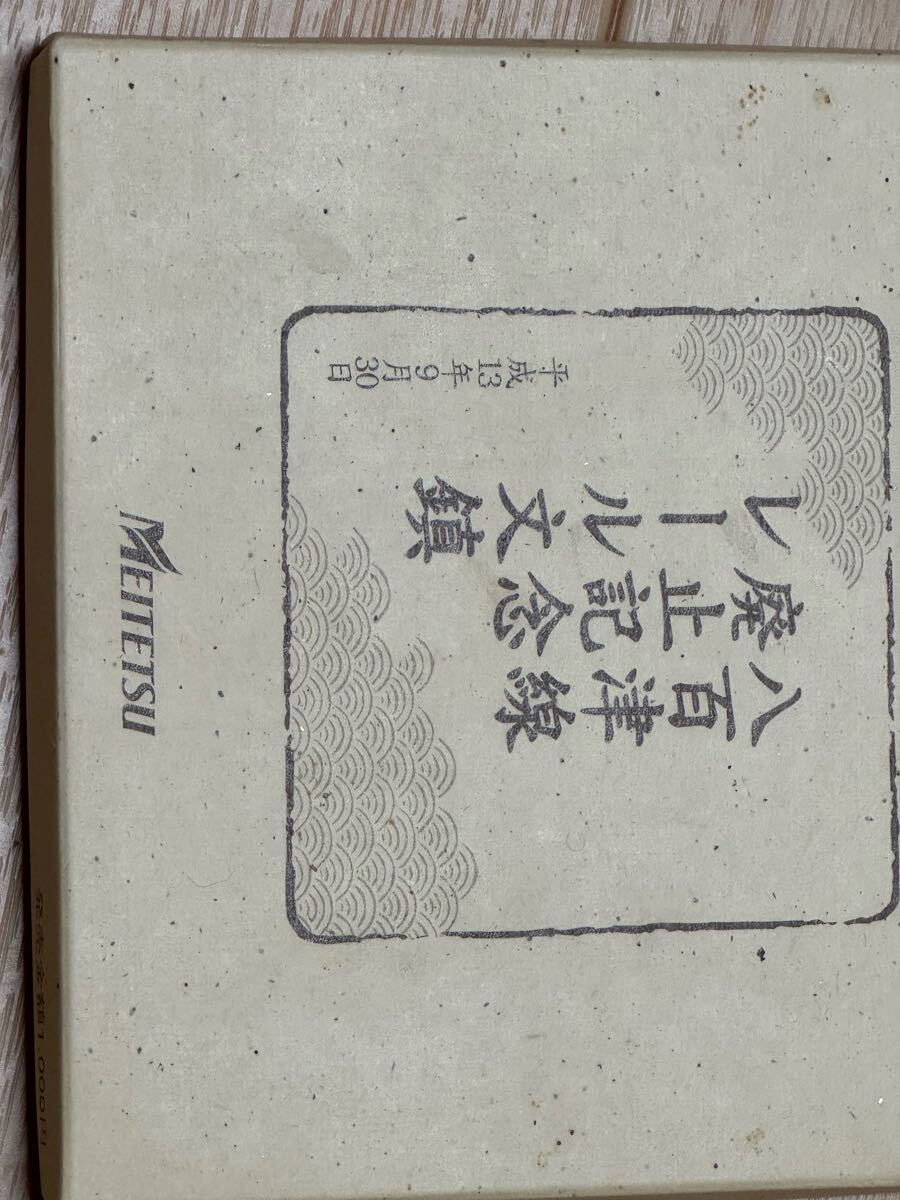 八百津線
廃止記念
レール文鎮
平成13年9月30日
MEITETSU
1,000円